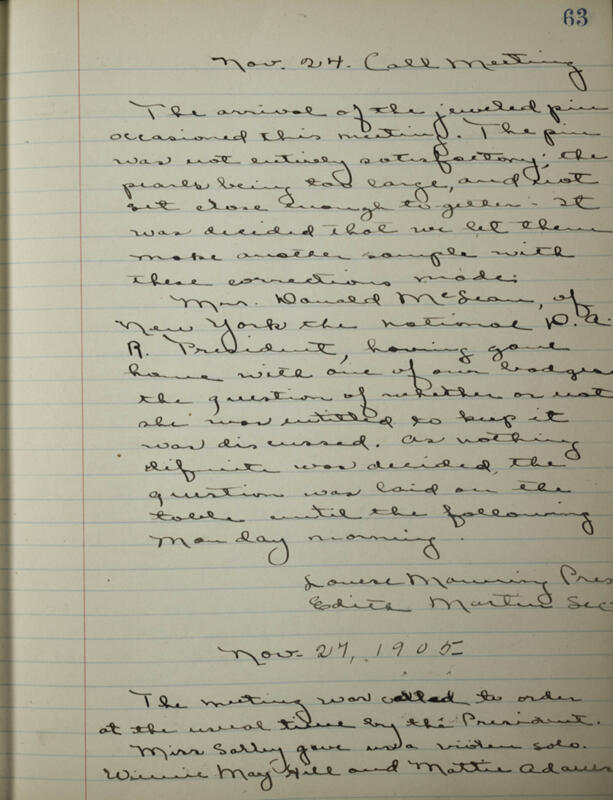 63
Nov. 24. Call Meeting
The arrival of the jeweled pin
occasioned this meeting. The pin
was not entirely satisfactory, the
pearls being too large, and not
set close enough together. It
was decided that we let them
make another sample with
these corrections made.
Mrs. Donald McLean, of
New York the national D. A.
R. President, having gone
home with one of our badges
the question of whether or not
she was entitled to keep it
was discussed. As nothing
difinite was decided, the
question was laid on the
table until the following
Monday morning.
Louise Manning Pres
Edith Martin Sec
Nov. 27, 1905
The meeting was called to order
at the usual time by the President.
Miss Salley gave us a violin solo.
Winnie May Hill and Mattie Adams